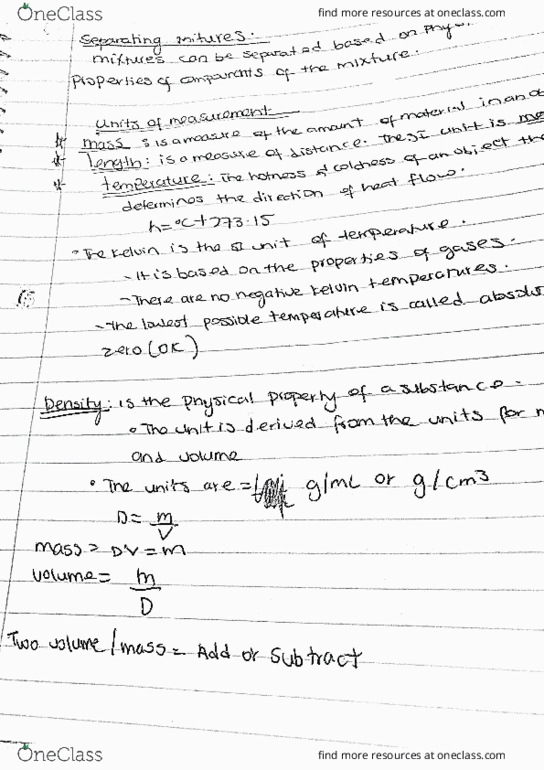 OneClass
find more resources at oneclass.com
Separating mitures.
mixtures can be separated based on Phys
Properties of components of the mixture.
Units of measurement
mass s is a measure of the amount of material in an
Length: is a measure of distance. The SI unit is me
temperature: The hotness & coldness of an object the
determines the direction of heat flow.
h=°C+273.15
• The Kelvin is the SI unit of temperature.
- It is based on the properties of gases.
- There are no negative Kelvin temperatures.
- The lowest possible temperature is called absolu
zero (0K)
Density: is the physical property of a substance.
• The unit is derived from the units for m
and volume
• The units are = g/mL or g/cm3
D= m
V
mass = DV = m
volume = m
D
Two volume/mass = Add or Subtract
OneClass
find more resources at oneclass.com